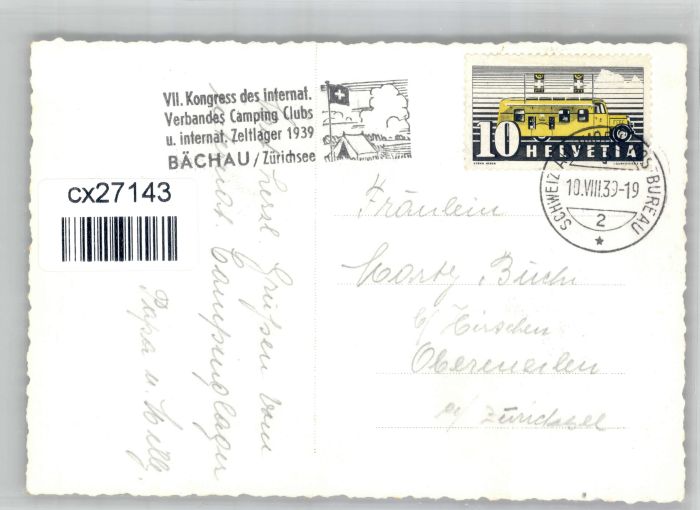 VII. Kongress des internat.
Verbandes Camping Clubs
u. internat. Zeltlager 1939
BÄCHAU / Zürichsee
10 HELVETIA
SCHWEIZ BUREAU
10.VIII.39-19
2
cx27143
Fräulein
Marty Büchi
Hirschen
Obermeilen
a/ Zürichsee
herzl. Grüßen vom
internat. Campinglager
Papa u. Willy.